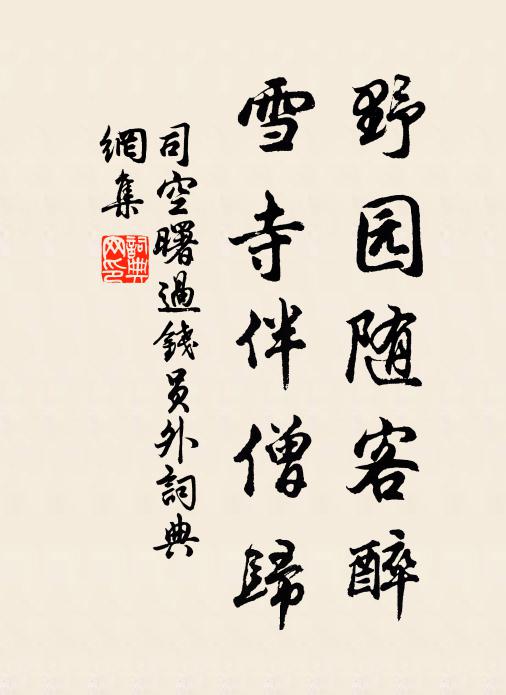 野园随客醉
雪寺伴僧歸
司空曙過錢員外詞典
網集
詞典
网印